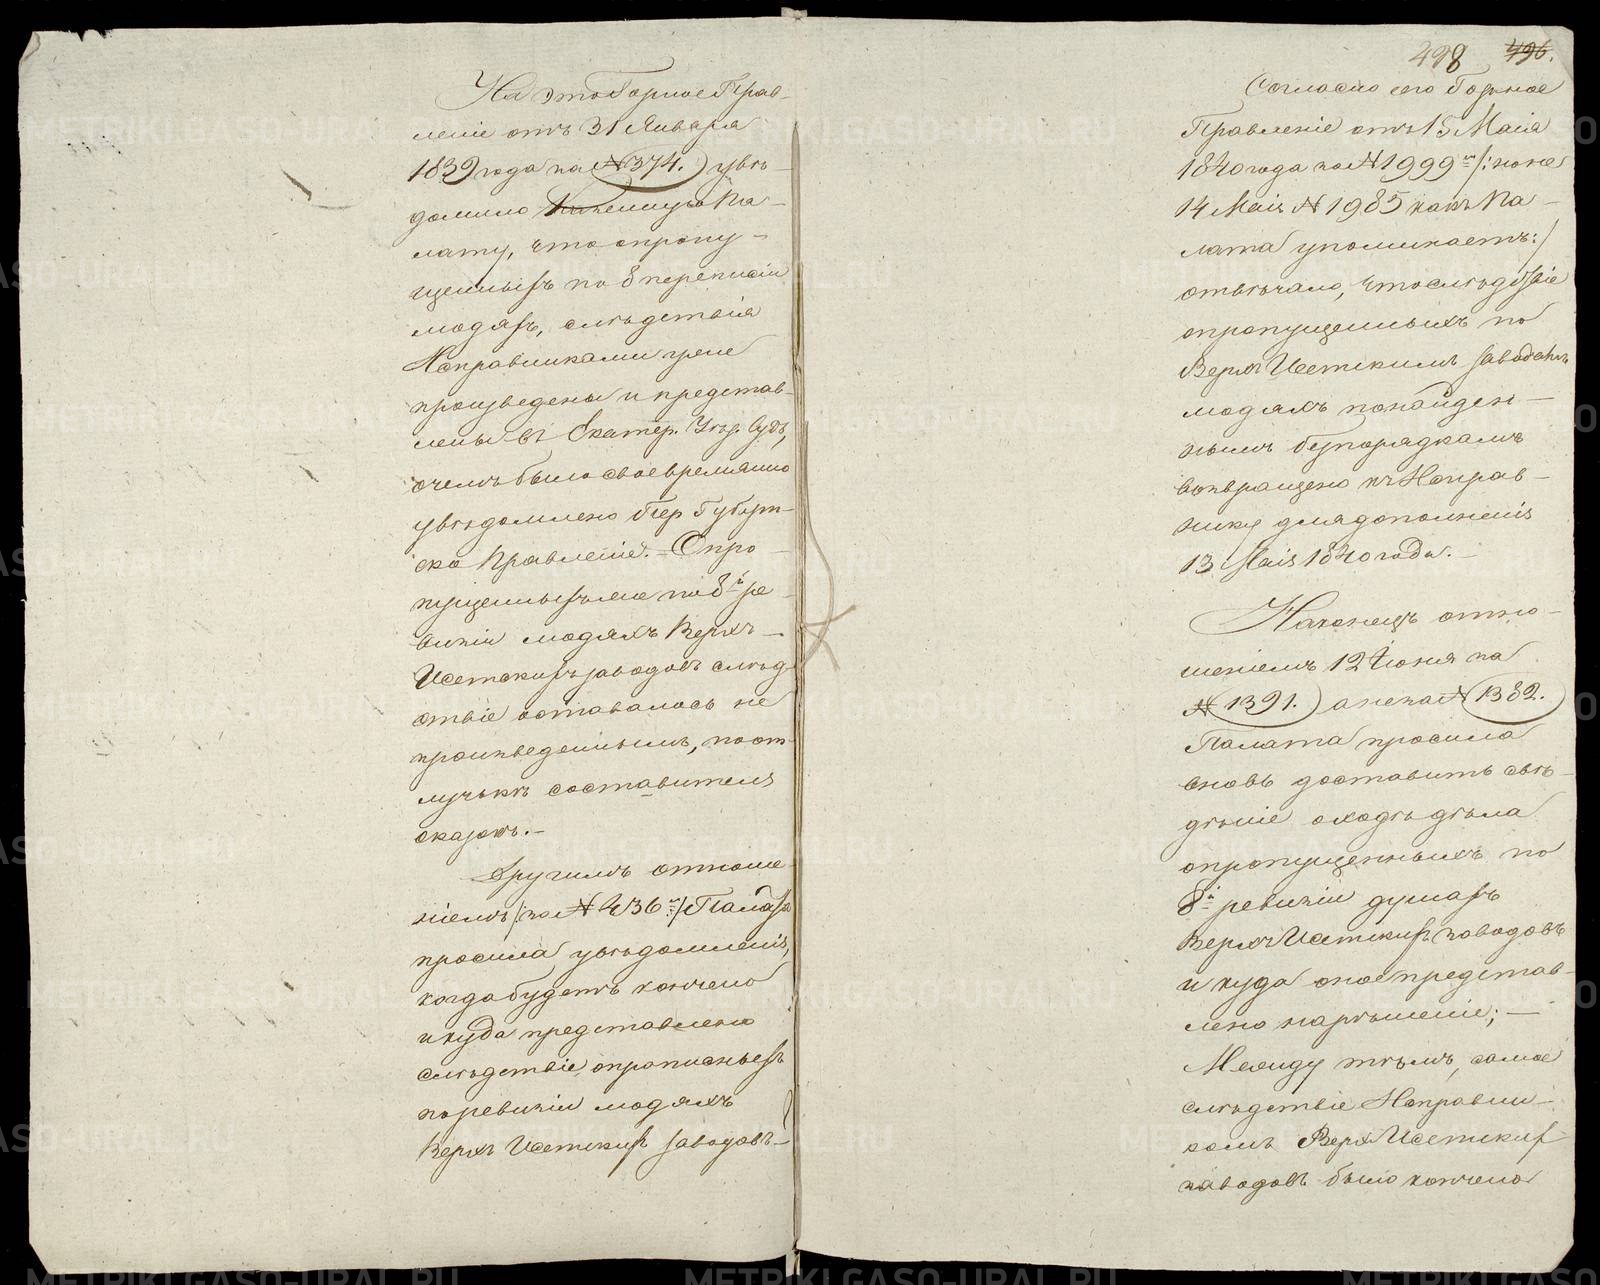 На это Горное Прав-
леніе отъ 31 Января
1839 года за № 374. увѣ-
домило Казенную Па-
лату, что о пропу-
щенныхъ по 8 переписи
людяхъ, слѣдствія
Исправниками уже
произведены и представ-
лены въ Екатер. Уѣзд. Судъ,
о чемъ было своевремянно
увѣдомлено Пер Губерн-
ско Правленіе. – О про-
пущенныхъ же по 8й ре-
визіи людяхъ Верхъ-
Исетскихъ заводовъ слѣд-
ствіе оставалось не
произведеннымъ, по от-
лучкѣ составителя
сказокъ. –
Другимъ отноше-
ніемъ /: за № 436 :/ Палата
просила увѣдомленія,
когда будетъ кончено
и куда представлено
слѣдствіе о прописныхъ
по ревизіи людяхъ
Верхъ Исетскихъ заводовъ –
498 496.
Согласно сего Горное
Правленіе отъ 15 Маія
1840 года за № 1999 /: а не
14 Маія № 1985 какъ Па-
лата упоминаетъ :/
отвѣчало, что слѣдствіе
о пропущенныхъ по
Верхъ Исетскимъ заводамъ
людяхъ по найден-
нымъ безпорядкамъ
возвращено къ Исправ-
нику для дополненія
13 Маія 1840 года. –
Наконецъ отно-
шеніемъ 12 Іюня за
№ 1391. а не за № 1382.
Палата просила
вновь доставить свѣ-
дѣніе о ходѣ дѣла
о пропущенныхъ по
8й ревизіи душахъ
Верхъ Исетскихъ заводовъ
и куда оное представ-
лено на рѣшеніе; –
Между тѣмъ, самое
слѣдствіе Исправни-
комъ Верхъ Исетскихъ
заводовъ было кончено
METRIKI.GASO-URAL.RU